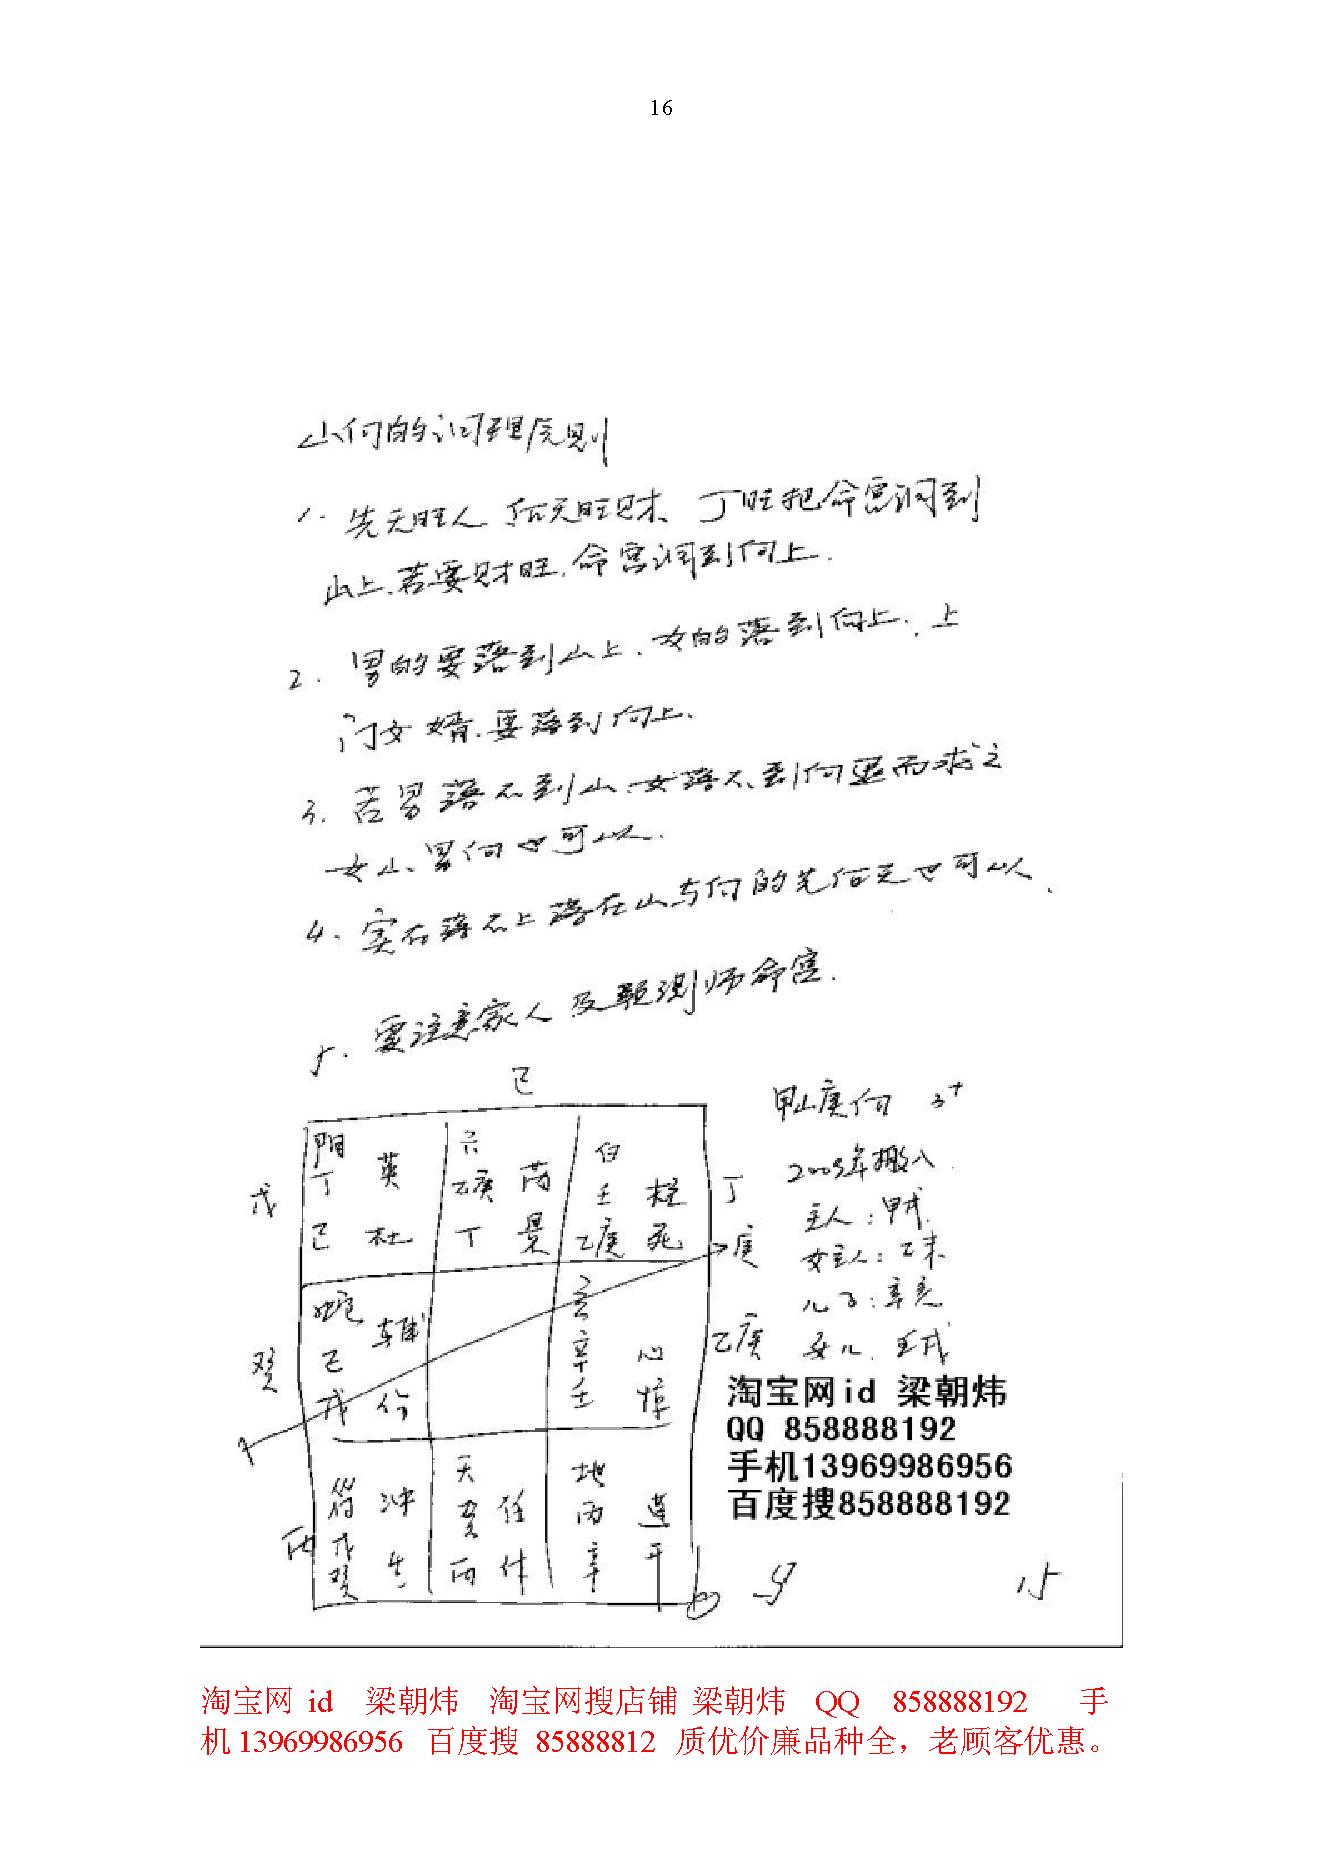 16
山向的调理原则
1. 先天旺人 后天旺财、丁旺把命宫调到
山上、若要财旺、命宫调到向上.
2. 男的要落到山上、女的落到向上、上
门女婿、要落到向上.
3. 若男落不到山、女落不到向退而求之
女山、男向也可以.
4. 实在落不上落在山与向的先后天也可以、
5. 要注意家人及预测师命宫.
己
甲山庚向
2005年搬入
主人:甲戌
女主人:乙未
儿子:辛亥
女儿、壬戌
阴 六 白
戊 丁 英 乙庚 芮 壬 柱 丁
己 杜 丁 景 乙庚 死 庚
蛇 辅 玄
癸 己 辛 心 乙庚
戊 伤 壬 惊
符 冲 天 地
丙 戊 癸 任 丙 蓬
癸 生 丙 休 辛 开
15
淘宝网id 梁朝炜
QQ 858888192
手机13969986956
百度搜858888192
淘宝网 id 梁朝炜 淘宝网搜店铺 梁朝炜 QQ 858888192 手
机 13969986956 百度搜 85888812 质优价廉品种全，老顾客优惠。